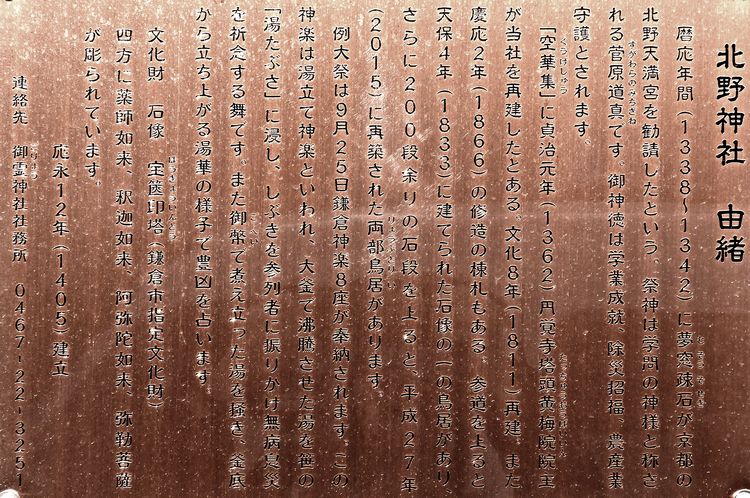 北野神社 由緒
暦応年間(1338~1342)に夢窓疎石が京都の
北野天満宮を勧請したという。祭神は学問の神様と称さ
れる菅原道真です。御神徳は学業成就、除災招福、農産業
守護とされます。
「空華集」に貞治元年(1362)円覚寺塔頭黄梅院院主
が当社を再建したとある。文化8年(1811)再建、また
慶応2年(1866)の修造の棟札もある、参道を上ると
天保4年(1833)に建てられた石造の一の鳥居があり
さらに200段余りの石段を上ると、平成27年
(2015)に再築された両部鳥居があります
例大祭は9月25日鎌倉神楽8座が奉納されます。この
神楽は湯立て神楽といわれ、大釜で沸騰させた湯を笹の
「湯たぶさ」に浸し、しぶきを参列者に振りかけ無病息災
を祈念する舞です。また御幣で煮え立った湯を掻き、釜底
から立ち上がる湯華の様子で豊凶を占います
文化財 石像 宝篋印塔(鎌倉市指定文化財)
四方に薬師如来、釈迦如来、阿弥陀如来、弥勒菩薩
が彫られています。
応永12年(1405)建立
連絡先 御霊神社社務所 0467-22-3251